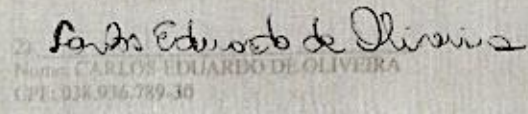 Carlos Eduardo de Oliveira
2)
Nome: CARLOS EDUARDO DE OLIVEIRA
CPF: 038.936.789-30